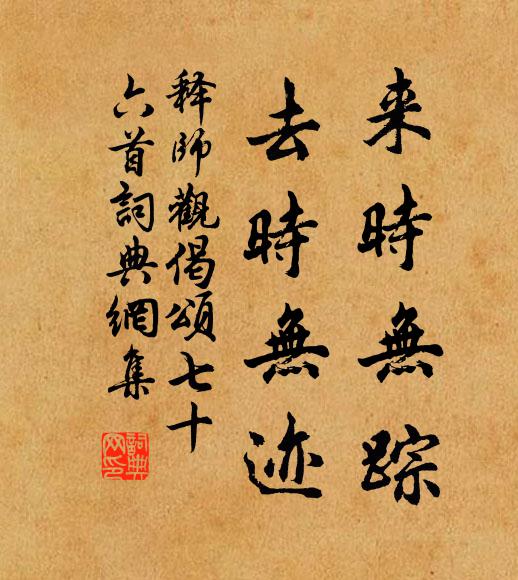 来時無踪
去時無迹
释師觀偈頌七十
六首詞典網集
詞典
网印